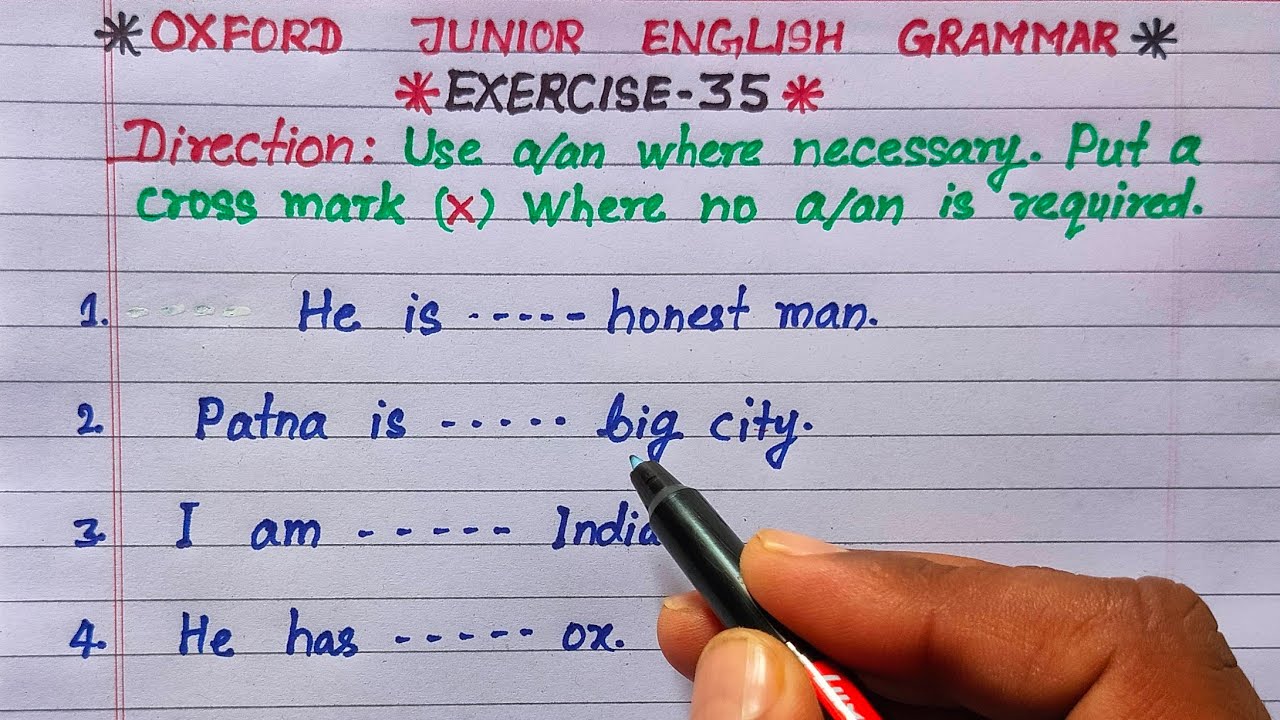 *OXFORD JUNIOR ENGLISH GRAMMAR*
*EXERCISE-35*
Direction: Use a/an where necessary. Put a
cross mark (x) where no a/an is required.
1. ---- He is ----- honest man.
2. Patna is ----- big city.
3. I am -----
4. He has ----- ox.